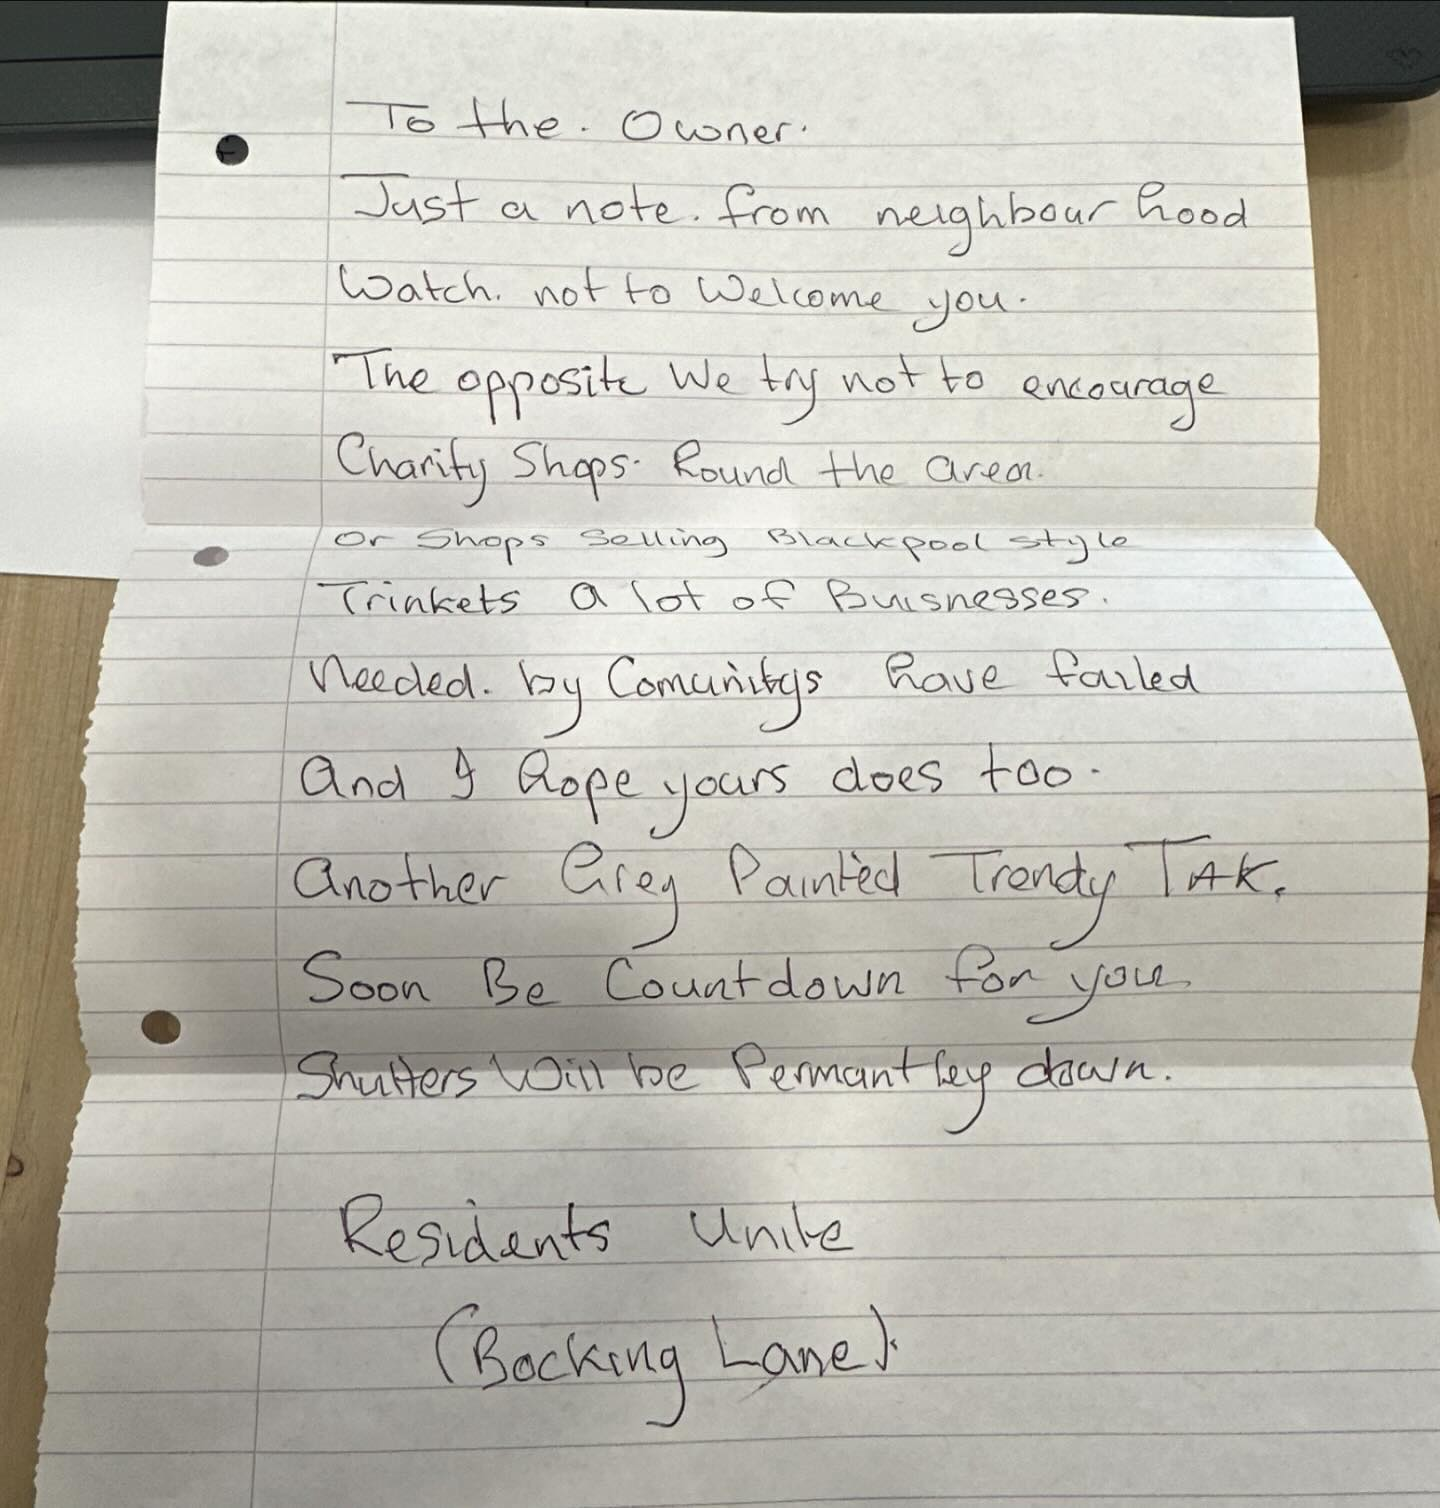 To the. Owner.
Just a note. from neighbour hood
Watch. not to Welcome you.
The opposite We try not to encourage
Charity Shops. Round the area.
or Shops Selling Blackpool style
Trinkets a lot of Buisnesses.
Needed. by Comunitys have failed
And I hope yours does too.
Another Grey Painted Trendy TAK.
Soon Be Countdown for you
Shutters Will be Permantley down.
Residents Unite
(Bocking Lane).